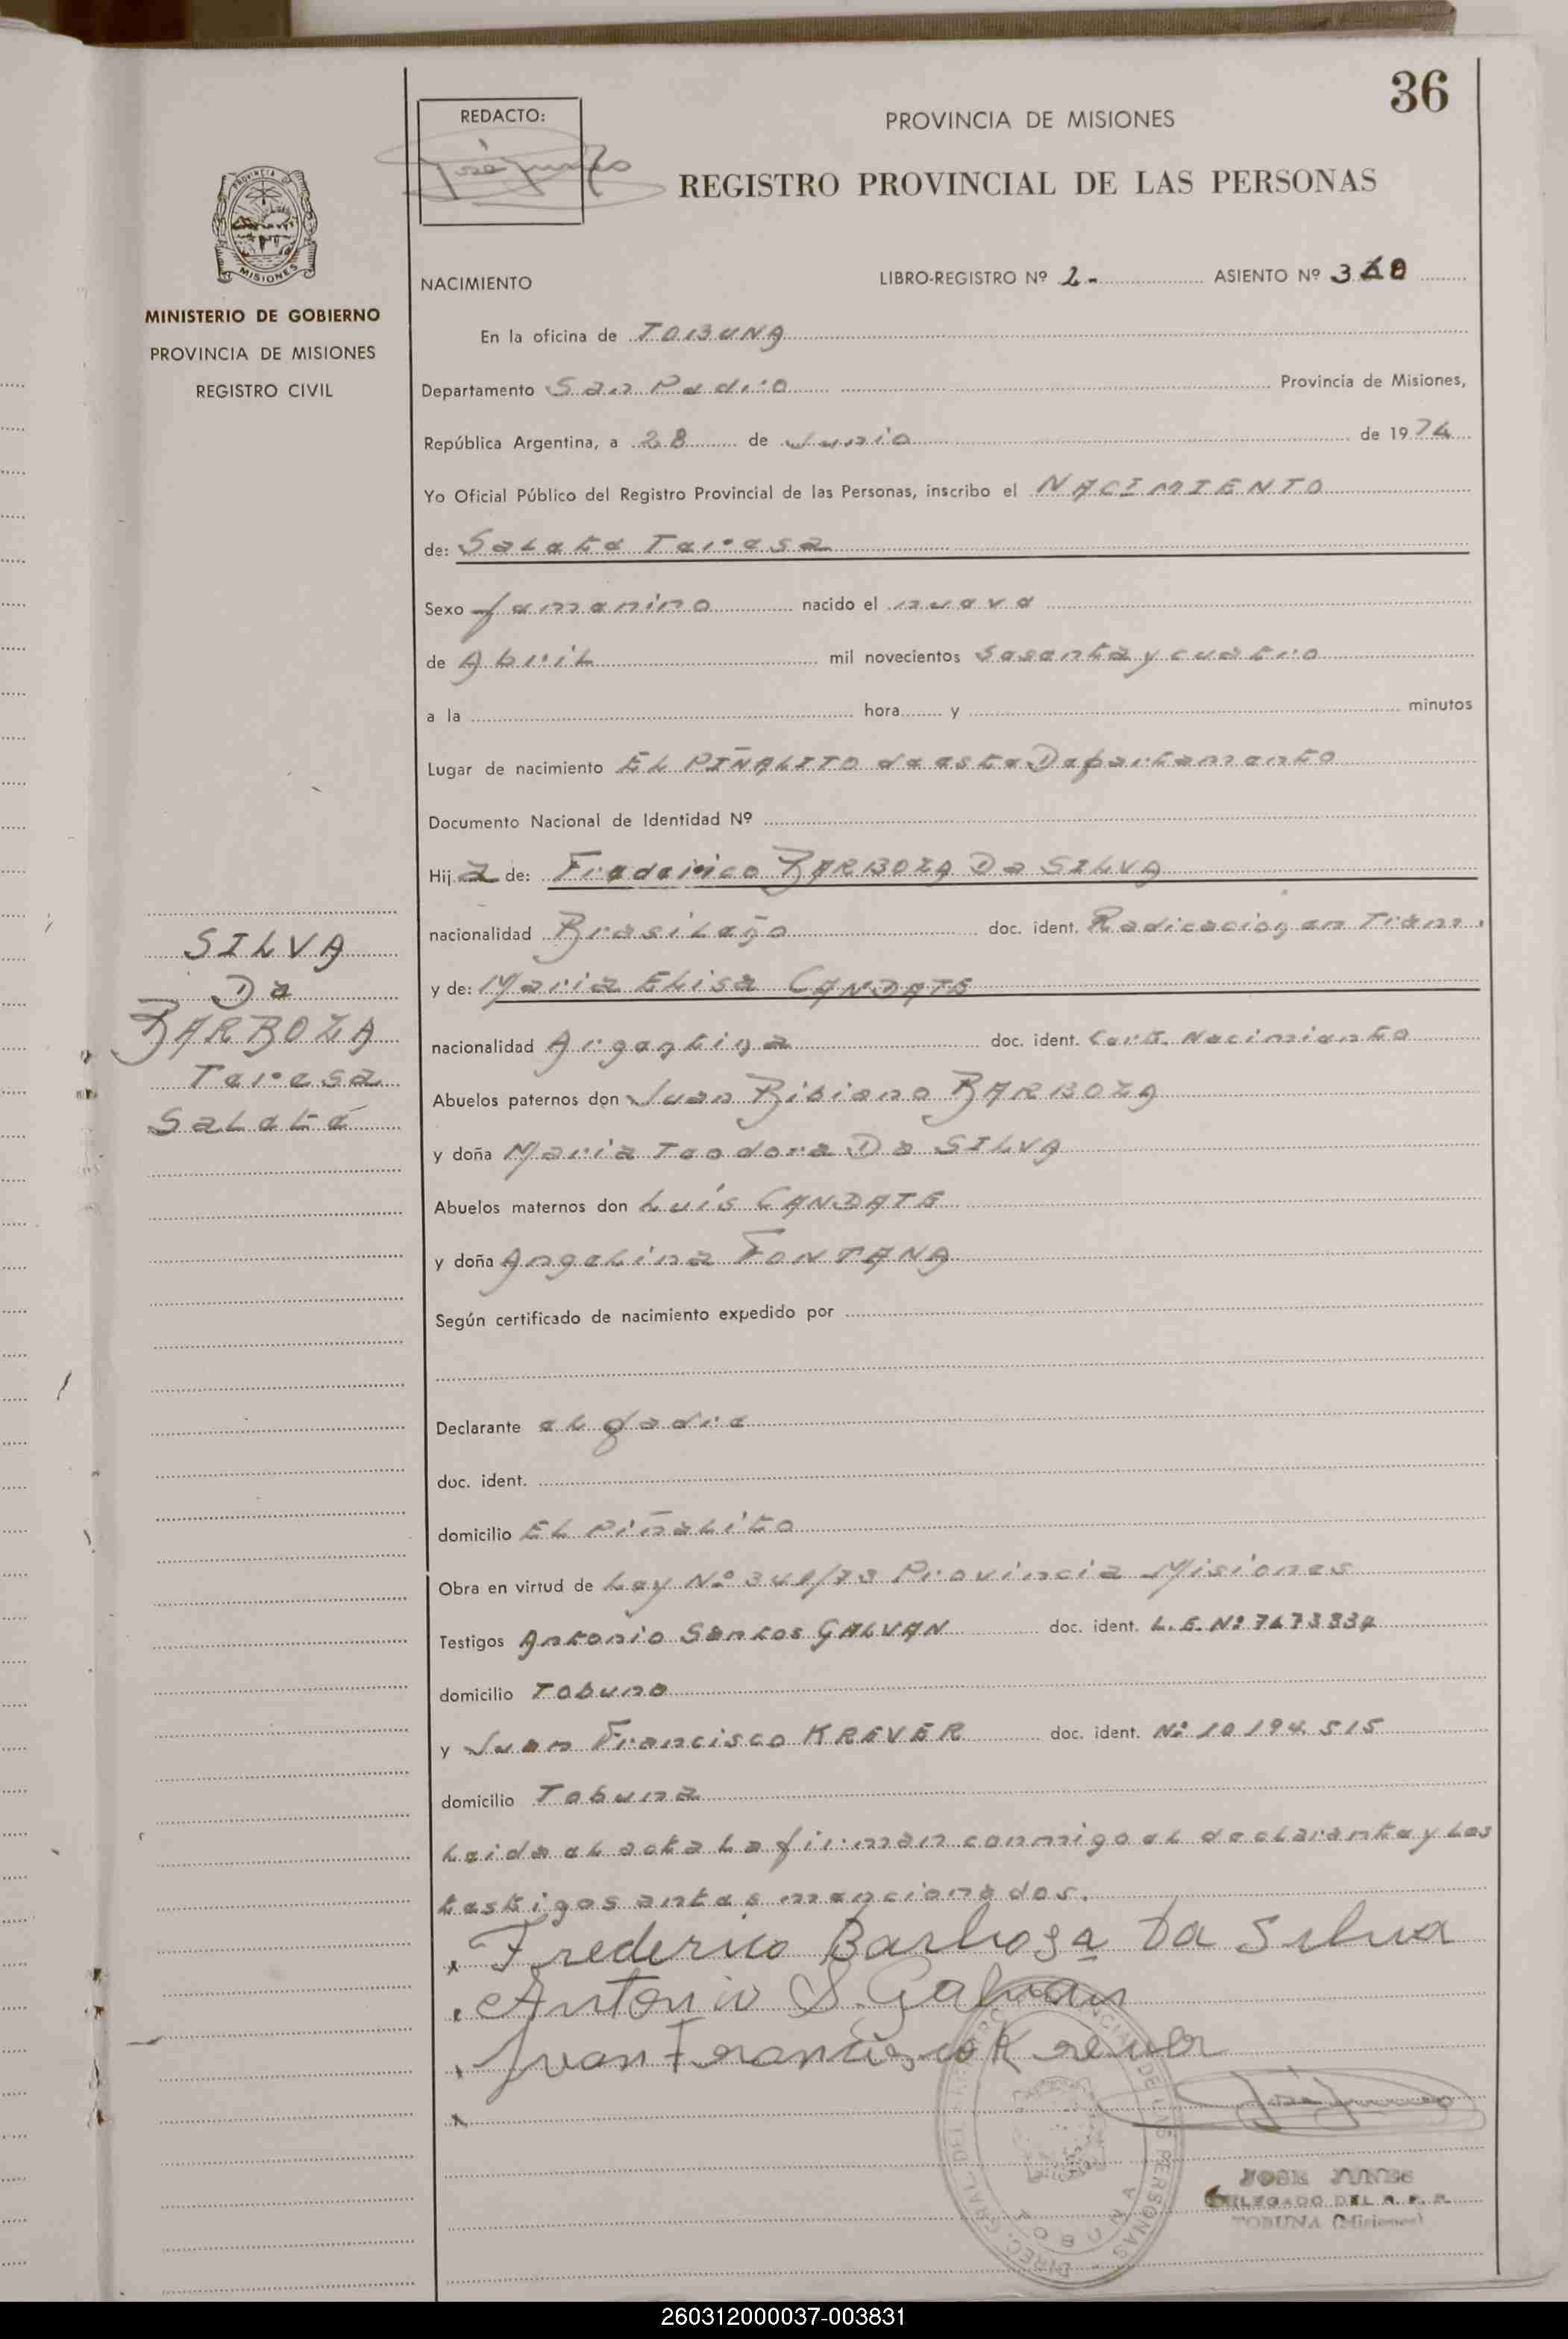 36
REDACTO:
PROVINCIA DE MISIONES
REGISTRO PROVINCIAL DE LAS PERSONAS
PROVINCIA DE
MISIONES
MINISTERIO DE GOBIERNO
PROVINCIA DE MISIONES
REGISTRO CIVIL
NACIMIENTO LIBRO-REGISTRO Nº 2- ASIENTO Nº
En la oficina de TOBUNA
Departamento San Pedro Provincia de Misiones,
República Argentina, a 28 de Junio de 1974
Yo Oficial Público del Registro Provincial de las Personas, inscribo el NACIMIENTO
de: Saleta Teresa
Sexo femenino nacido el nueve
de Abril mil novecientos sesenta y cuatro
a la hora y minutos
Lugar de nacimiento EL PIÑALITO de este Departamento
Documento Nacional de Identidad Nº
Hija de: Frederico BARBOZA Da SILVA
nacionalidad Brasileño doc. ident. Radicacion en Tram.
y de: Maria Elisa CANDATE
nacionalidad Argentina doc. ident. Cert. Nacimiento
Abuelos paternos don Juan Bibiano BARBOZA
y doña Maria Teodora Da SILVA
Abuelos maternos don Luis CANDATE
y doña Angelina FONTANA
Según certificado de nacimiento expedido por
Declarante el padre
doc. ident.
domicilio EL Piñalito
Obra en virtud de Ley Nº /73 Provincia Misiones
Testigos Antonio Santos GALVAN doc. ident. L.E. Nº 7673834
domicilio Tobuna
y Juan Francisco KREVER doc. ident. Nº 10.194.515
domicilio Tobuna
Leida el acta la firman conmigo el declarante y los
testigos antes mencionados.
SILVA
Da
BARBOZA
Teresa
Saleté
x Frederico Barbosa Da Silva
Antonio S. Galvan
Juan Francisco Krever
x
DIREC. GRAL. DEL REGISTRO PROVINCIAL DE LAS PERSONAS
TOBUNA
JOSE
DELEGADO DEL R. P. P.
TOBUNA (Misiones)
260312000037-003831